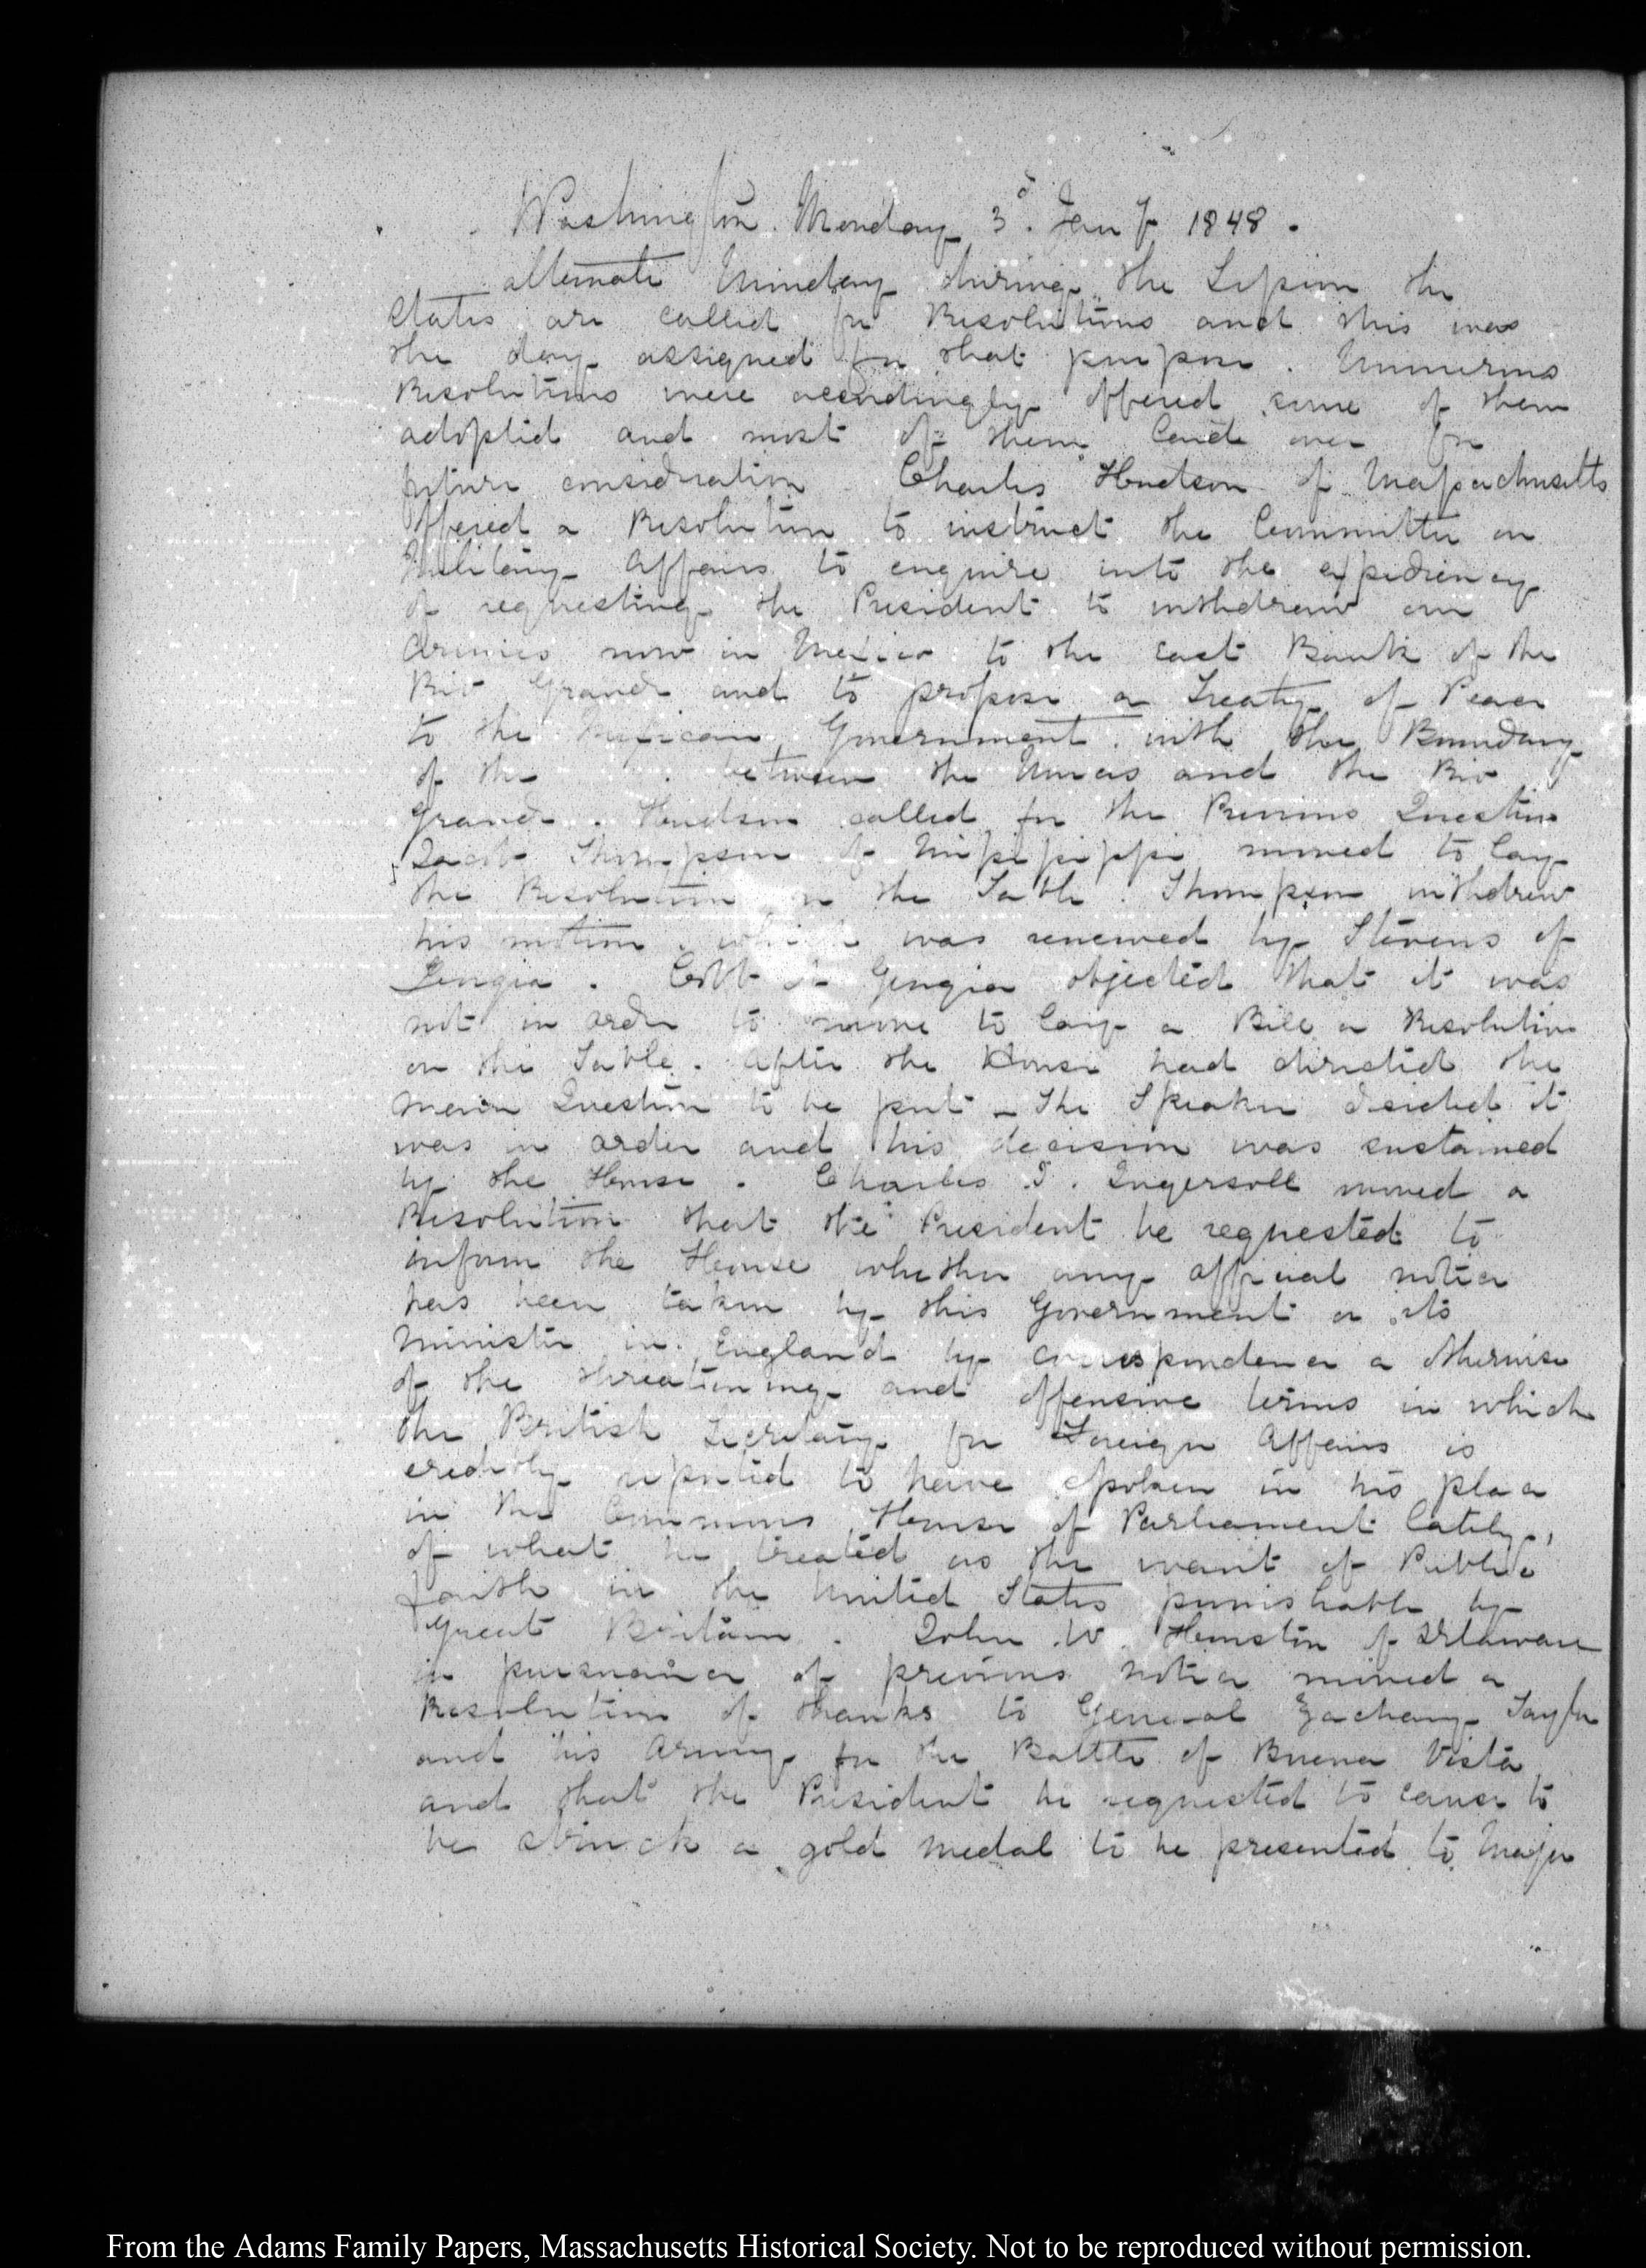 Washington. Monday 3d. Jany 1848.
alternate Munday during the Session the
States are called for Resolutions and this was
the day assigned for that purpose. Numerous
Resolutions were accordingly offered some of them
adopted and most of them laid over for
future consideration Charles Hudson of Massachusetts
offered a Resolution to instruct the Committee on
Military Affairs to enquire into the expediency
of requesting the President to withdraw our
Armies now in Mexico to the East Bank of the
Rio Grande and to propose a Treaty of Peace
to the Mexican Government with the Boundary
of the between the Nueces and the Rio
Grande. Hudson called for the Previous Question
Jacob Thompson of Mississippi moved to lay
the Resolution on the Table. Thompson withdrew
his motion which was renewed by Stevens of
Georgia. Cobb of Georgia objected that it was
not in order to move to lay a Bill or Resolution
on the Table. After the House had directed the
Main Question to be put - The Speaker decided it
was in order and his decision was sustained
by the House. Charles J. Ingersoll moved a
Resolution that the President be requested to
inform the House whether any official notice
has been taken by this Government or its
Minister in England by correspondence or otherwise
of the threatening and offensive terms in which
the British Secretary for Foreign Affairs is
credibly reputed to have spoken in his place
in the Commons House of Parliament lately,
of what he treated as the want of Public
faith in the United States punishable by
Great Britain. John W. Houston of Delaware
in pursuance of previous notice moved a
Resolution of thanks to General Zachary Taylor
and his Army for the Battle of Buena Vista
and that the President be requested to cause to
be struck a gold medal to be presented to Major
From the Adams Family Papers, Massachusetts Historical Society. Not to be reproduced without permission.